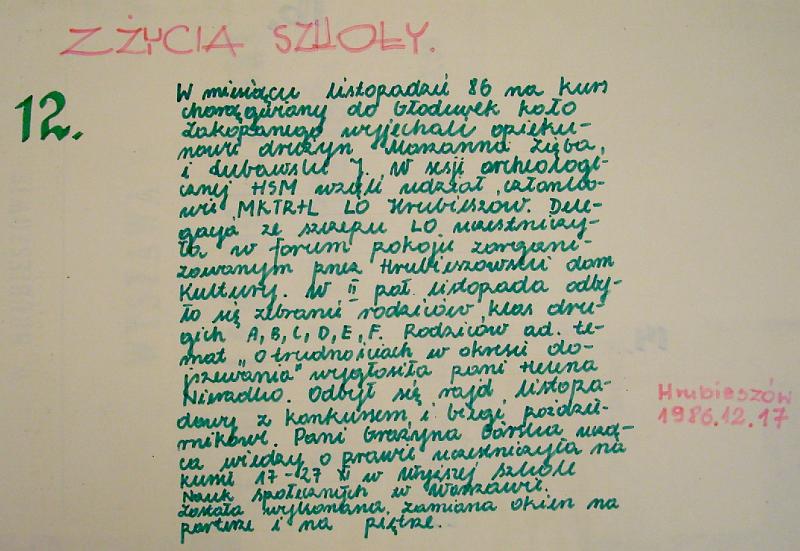 Z ŻYCIA SZKOŁY.
12.
W miesiącu listopadzie 86 na kurs
chorągwiany do Głodówek koło
Zakopanego wyjechali opieku-
nowie drużyn Marzanna Zięba,
i Lubawski J. W sesji archeologi-
cznej HSM wzięli udział członko-
wie MKTR+L LO Hrubieszów. Dele-
gaja ze szczepu LO uczestniczy-
ła w forum pokoju zorgani-
zowanym przez Hrubieszowski dom
Kultury. W II poł. listopada odby-
ło się zebranie rodziców klas dru-
gich A, B, C, D, E, F. Rodziców ad. te-
mat „O trudnościach w okresie do-
jrzewania" wygłosiła pani Helena
Odbył się rajd listopa-
dowy z konkursem, i biegi paździe-
rnikowe. Pani Grażyna Górska uczą-
ca wiedzy o prawie uczestniczyła na
kursie 17-27 XI w Wyższej szkole
Nauk społecznych w Warszawie.
Została wykonana zamiana okien na
parterze i na piętrze.
Hrubieszów
1986.12.17